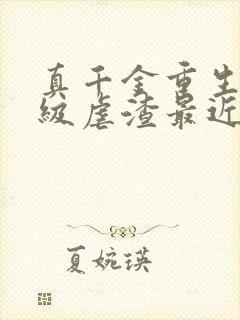 真千金重生
级虐渣最近
夏婉瑛